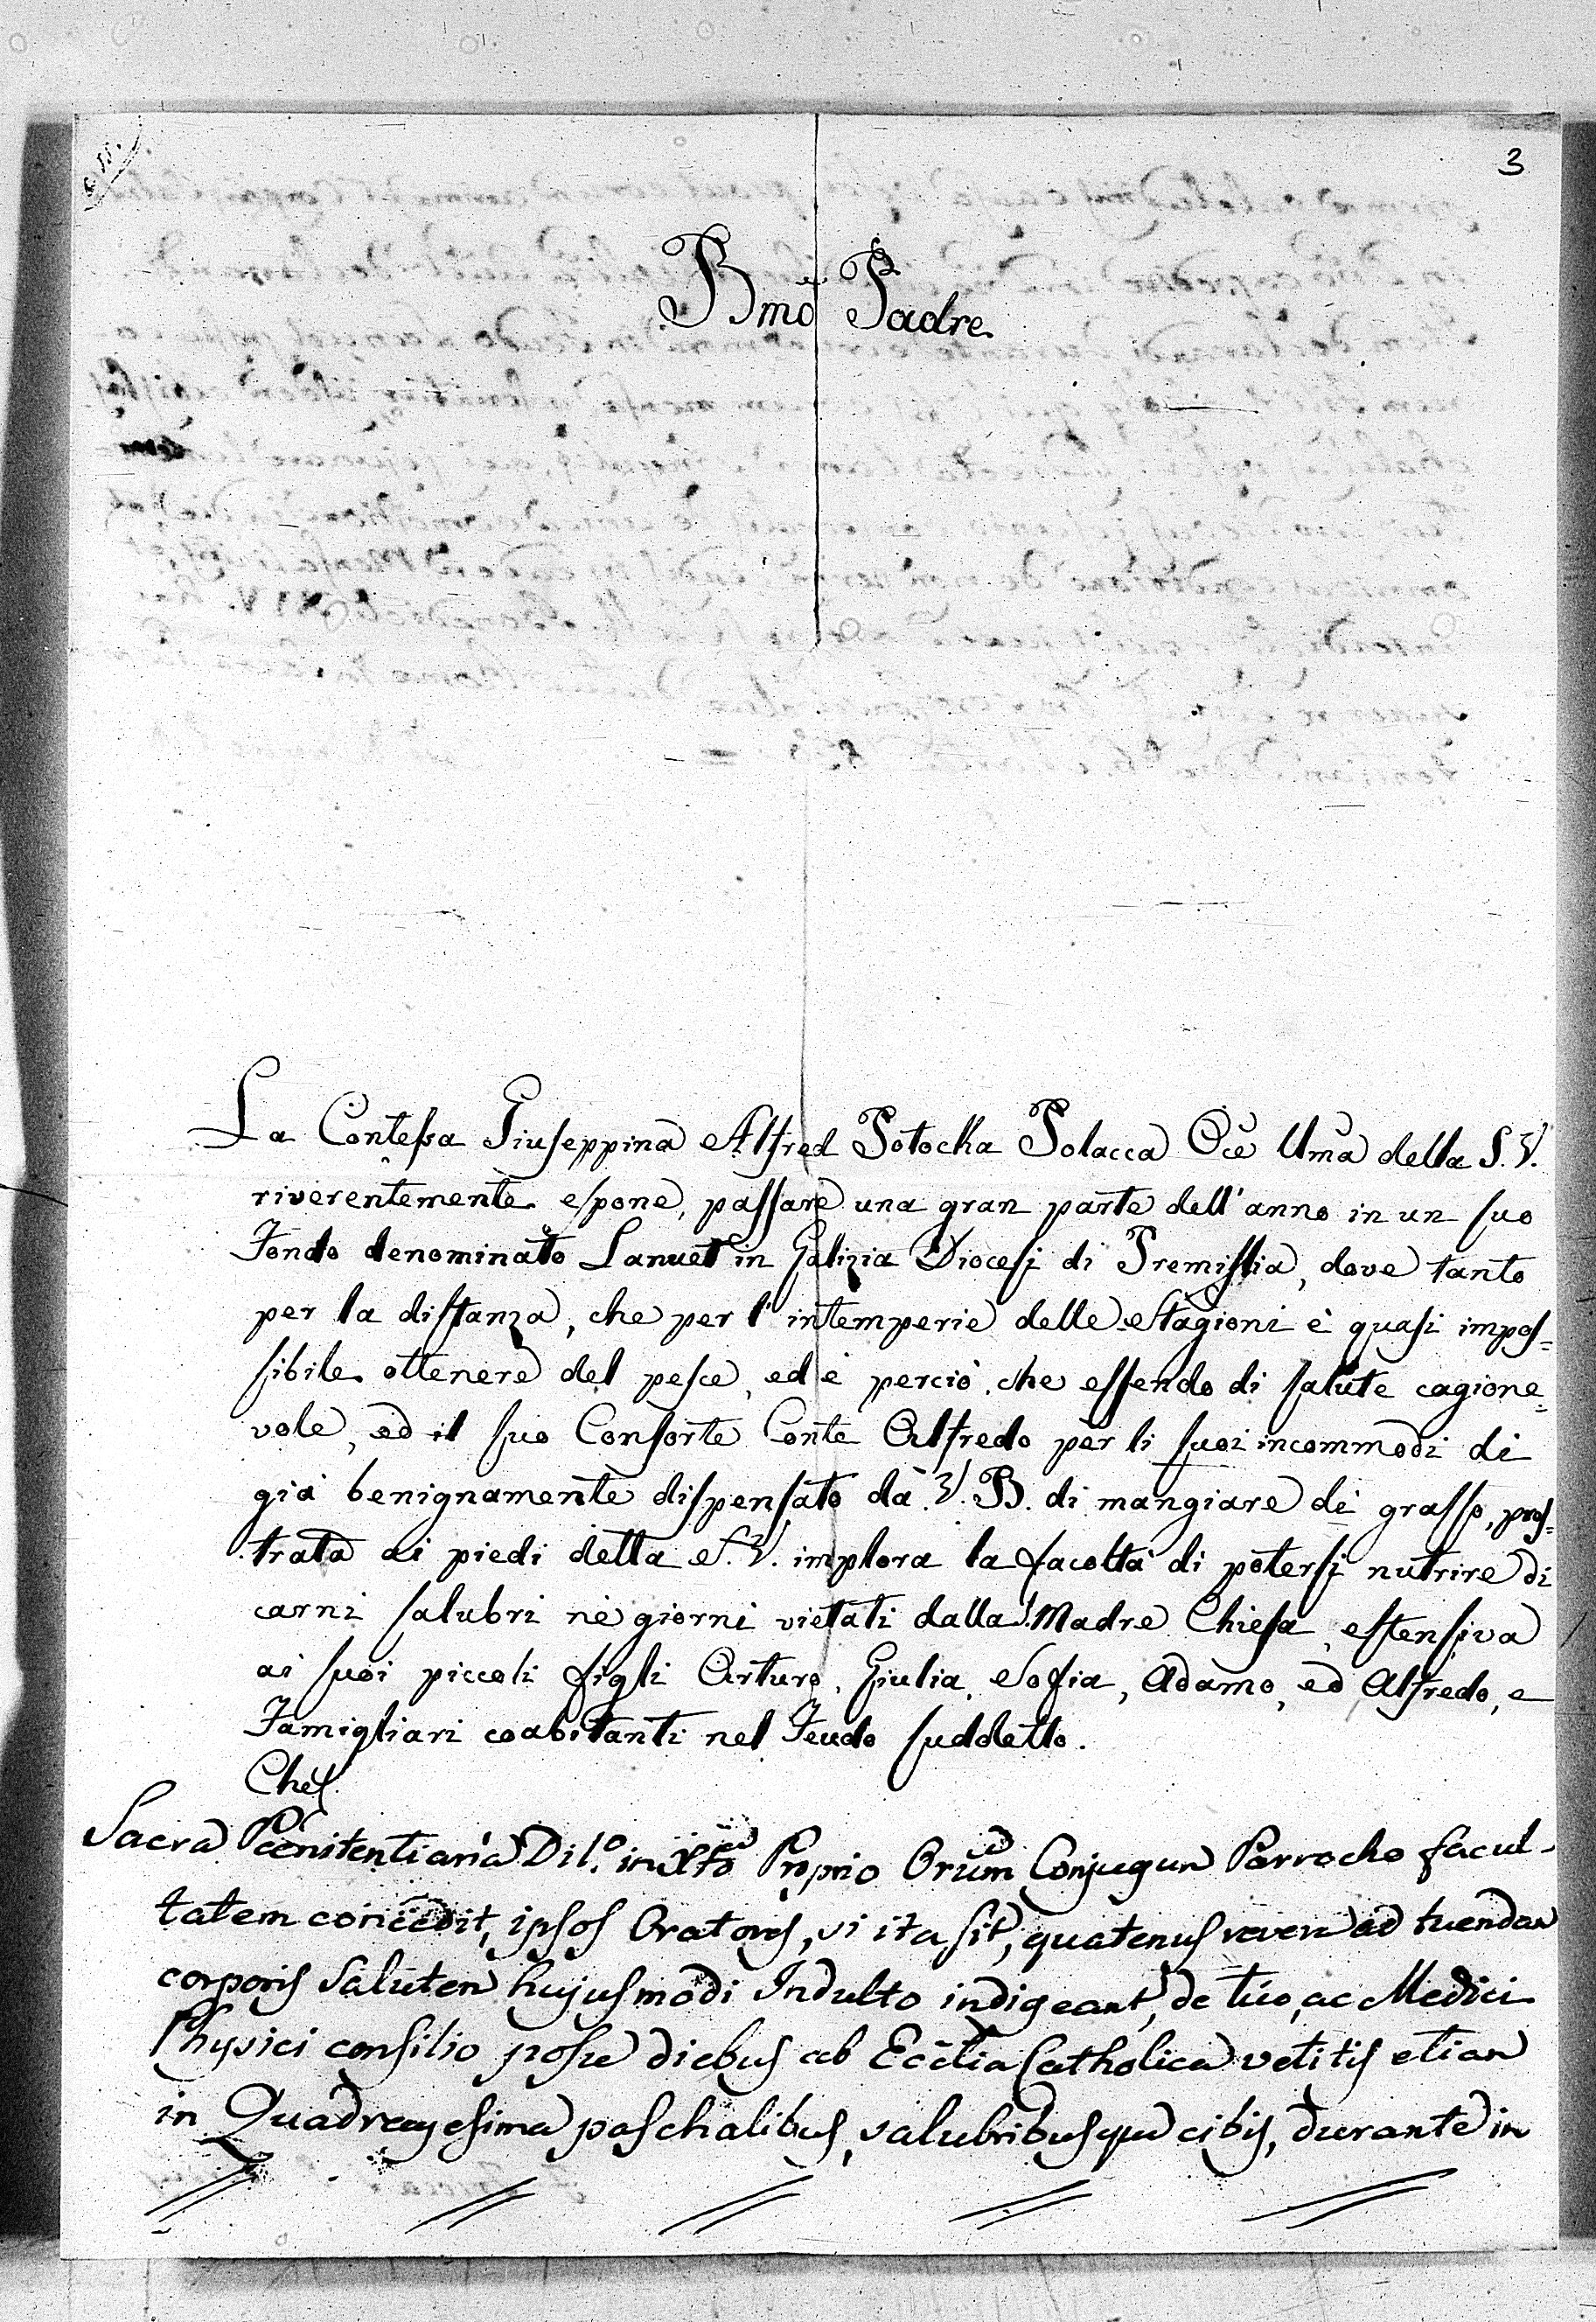 3
Bmo Padre
La Contessa Giuseppina Alfred Potocka Polacca Oce Uma della S. V.
riverentemente espone, passare una gran parte dell'anno in un suo
Fondo denominato Lanuet in Galizia Diocesi di Premislia, dove tanto
per la distanza, che per l'intemperie delle Stagioni è quasi impos=
sibile ottenere del pesce, ed è perciò, che essendo di salute cagione=
vole, ed il suo Consorte Conte Alfredo per li suoi incommodi di
già benignamente dispensato da V. B. di mangiare di grasso, pros=
trata ai piedi della S. V. implora la facoltà di potersi nutrire di
carni salubri nè giorni vietati dalla S. Madre Chiesa, estensiva
ai suoi piccoli figli Arturo, Giulia, Sofia, Adamo, ed Alfredo, e
Famigliari coabitanti nel Feudo suddetto.
Che
Sacra Poenitentiaria Dil.o in Xto Proprio Orum Conjugum Parrocho facul-
tatem concedit, ipsos Oratores, si ita sit, quatenus revera ad tuendam
corporis salutem hujusmodi Indulto indigeant, de tuo, ac Medici
Physici consilio posse diebus ab Ecclia Catholica vetitis etiam
in Quadragesima paschalibus, salubribusque cibis, durante in